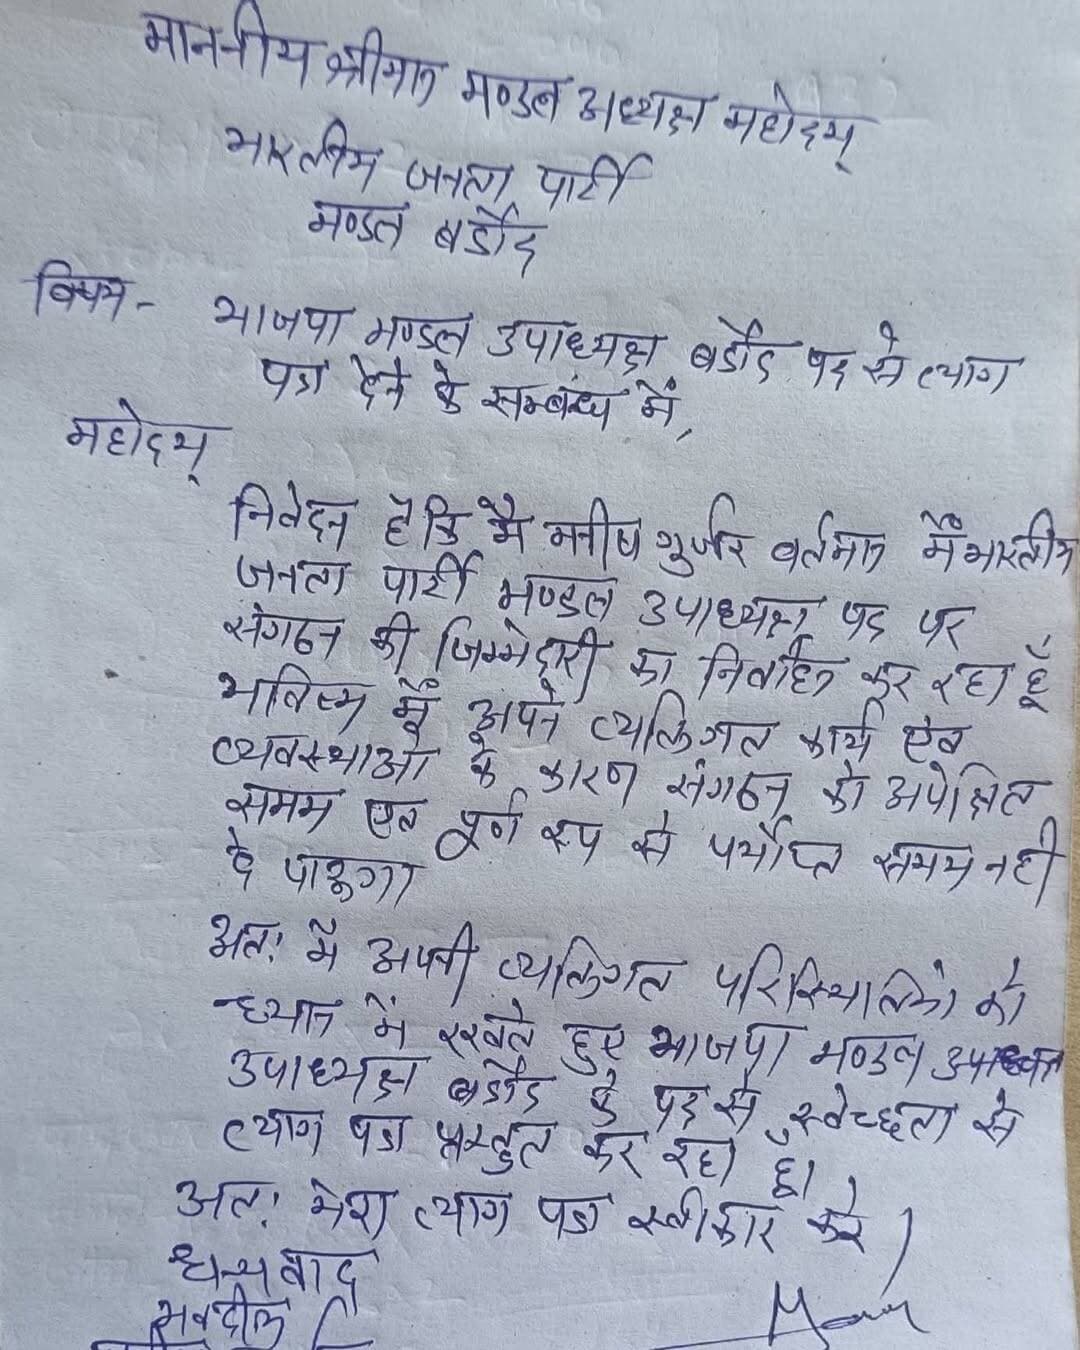 माननीय श्रीमान मण्डल अध्यक्ष महोदय्
भारतीय जनता पार्टी
मण्डल बर्डोद
विषय - भाजपा मण्डल उपाध्यक्ष बर्डोद पद से त्याग
पत्र देने के सम्बंध में,
महोदय्
निवेदन है कि मै मनीष गुर्जर वर्तमान में भारतीय
जनता पार्टी मण्डल उपाध्यक्ष पद पर
संगठन की जिम्मेदारी का निर्वाहन कर रहा हूँ
भविष्य में अपने व्यक्तिगत कार्य एंव
व्यवस्थाओ के कारण संगठन को अपेक्षित
समय एंव पूर्ण रूप से पर्याप्त समय नही
दे पाऊगा
अत: मै अपनी व्यक्तिगत परिस्थितियो को
ध्यान में रखते हुए भाजपा मण्डल उपाध्यक्ष
उपाध्यक्ष बर्डोद के पद से स्वेच्छता से
त्याग पत्र प्रस्तुत कर रहा हूँ।
अत: मेरा त्याग पत्र स्वीकार करे
धन्यवाद
भवदीय